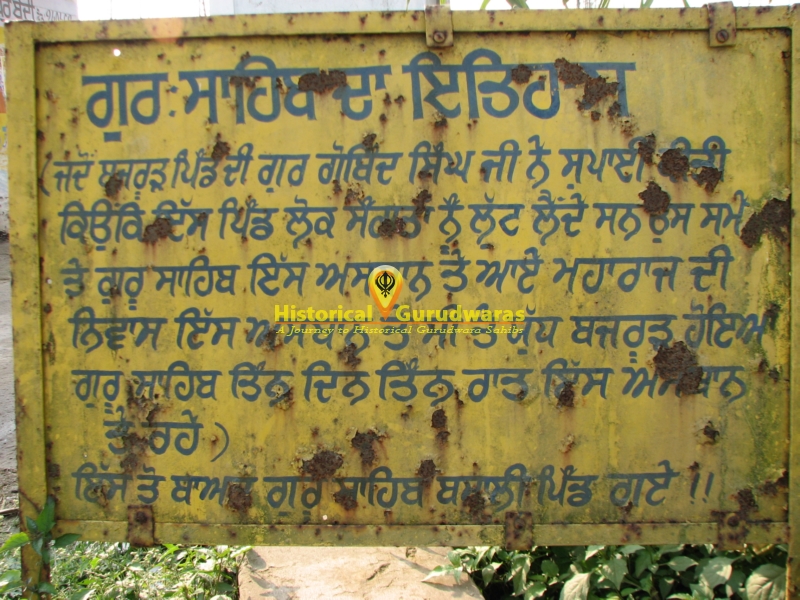 ਗੁਰ: ਸਾਹਿਬ ਦਾ ਇਤਿਹਾਸ
(ਜਦੋਂ ਬਜਰੂੜ ਪਿੰਡ ਦੀ ਗੁਰੂ ਗੋਬਿੰਦ ਸਿੰਘ ਜੀ ਨੇ ਸੁਪਾਈ ਕੀਤੀ
ਕਿਉਂਕਿ ਇੱਸ ਪਿੰਡ ਲੋਕ ਸੰਗਤਾਂ ਨੂੰ ਲੁੱਟ ਲੈਂਦੇ ਸਨ ਉਸ ਸਮੇਂ
ਤੇ ਗੁਰੂ ਸਾਹਿਬ ਇੱਸ ਅਸਥਾਨ ਤੇ ਆਏ ਮਹਾਰਾਜ ਦੀ
ਨਿਵਾਸ ਇੱਸ ਯੁੱਧ ਬਜਰੂੜ ਹੋਇਆ
ਗੁਰੂ ਸਾਹਿਬ ਤਿੰਨ ਦਿਨ ਤਿੰਨ ਰਾਤ ਇੱਸ ਅਸਥਾਨ
ਤੇ ਰਹੇ)
ਇੱਸ ਤੋ ਬਾਅਦ ਗੁਰੂ ਸਾਹਿਬ ਬਸਾਲੀ ਪਿੰਡ ਗਏ !!
Historical Gurudwaras
A Journey to Historical Gurudwara Sahibs